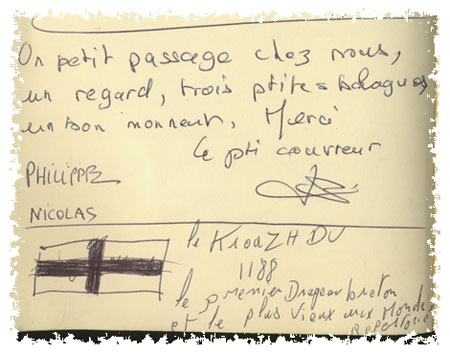 Un petit passage chez nous,
un regard, trois ptites blagues
un bon moment, Merci
Le pti couvreur
PHILIPPE
NICOLAS
le KroaZH DU
1188
le premier Drapeau breton
et le plus vieux aux Monde
Repertorié